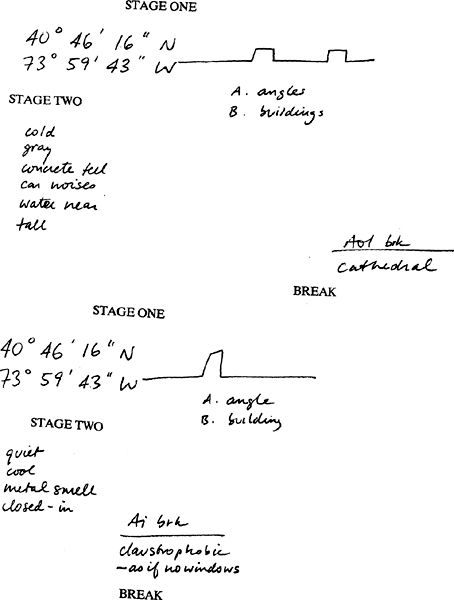 STAGE ONE
40° 46' 16" N
73° 59' 43" W
A. angles
B. buildings
STAGE TWO
cold
gray
concrete feel
car noises
water near
tall
Aol brk
Cathedral
BREAK
STAGE ONE
40° 46' 16" N
73° 59' 43" W
A. angle
B. building
STAGE TWO
quiet
cool
metal smell
closed-in
Ai brk
claustrophobic
- as if no windows
BREAK